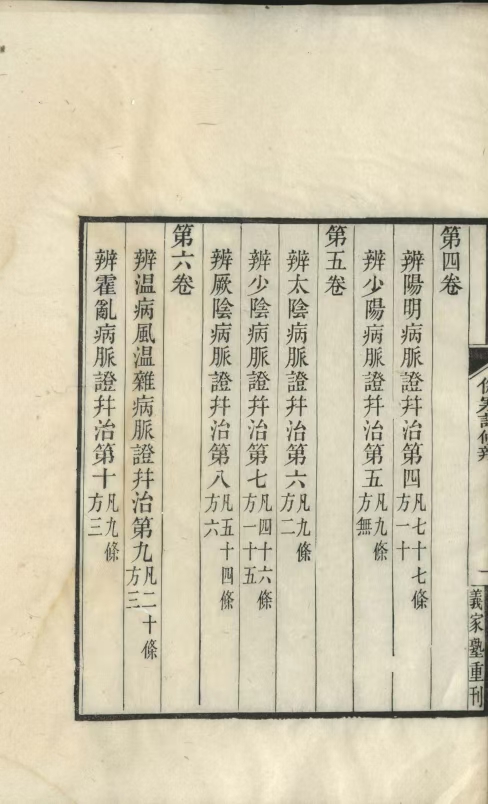 第四卷
辨陽明病脈證幷治第四凡七十七條方一十
辨少陽病脈證幷治第五凡九條方無
第五卷
辨太陰病脈證幷治第六凡九條方二
辨少陰病脈證幷治第七凡四十六條方一十五
辨厥陰病脈證幷治第八凡五十四條方六
第六卷
辨温病風温雜病脈證幷治第九凡二十條方三
辨霍亂病脈證幷治第十凡九條方三
義家塾重刊